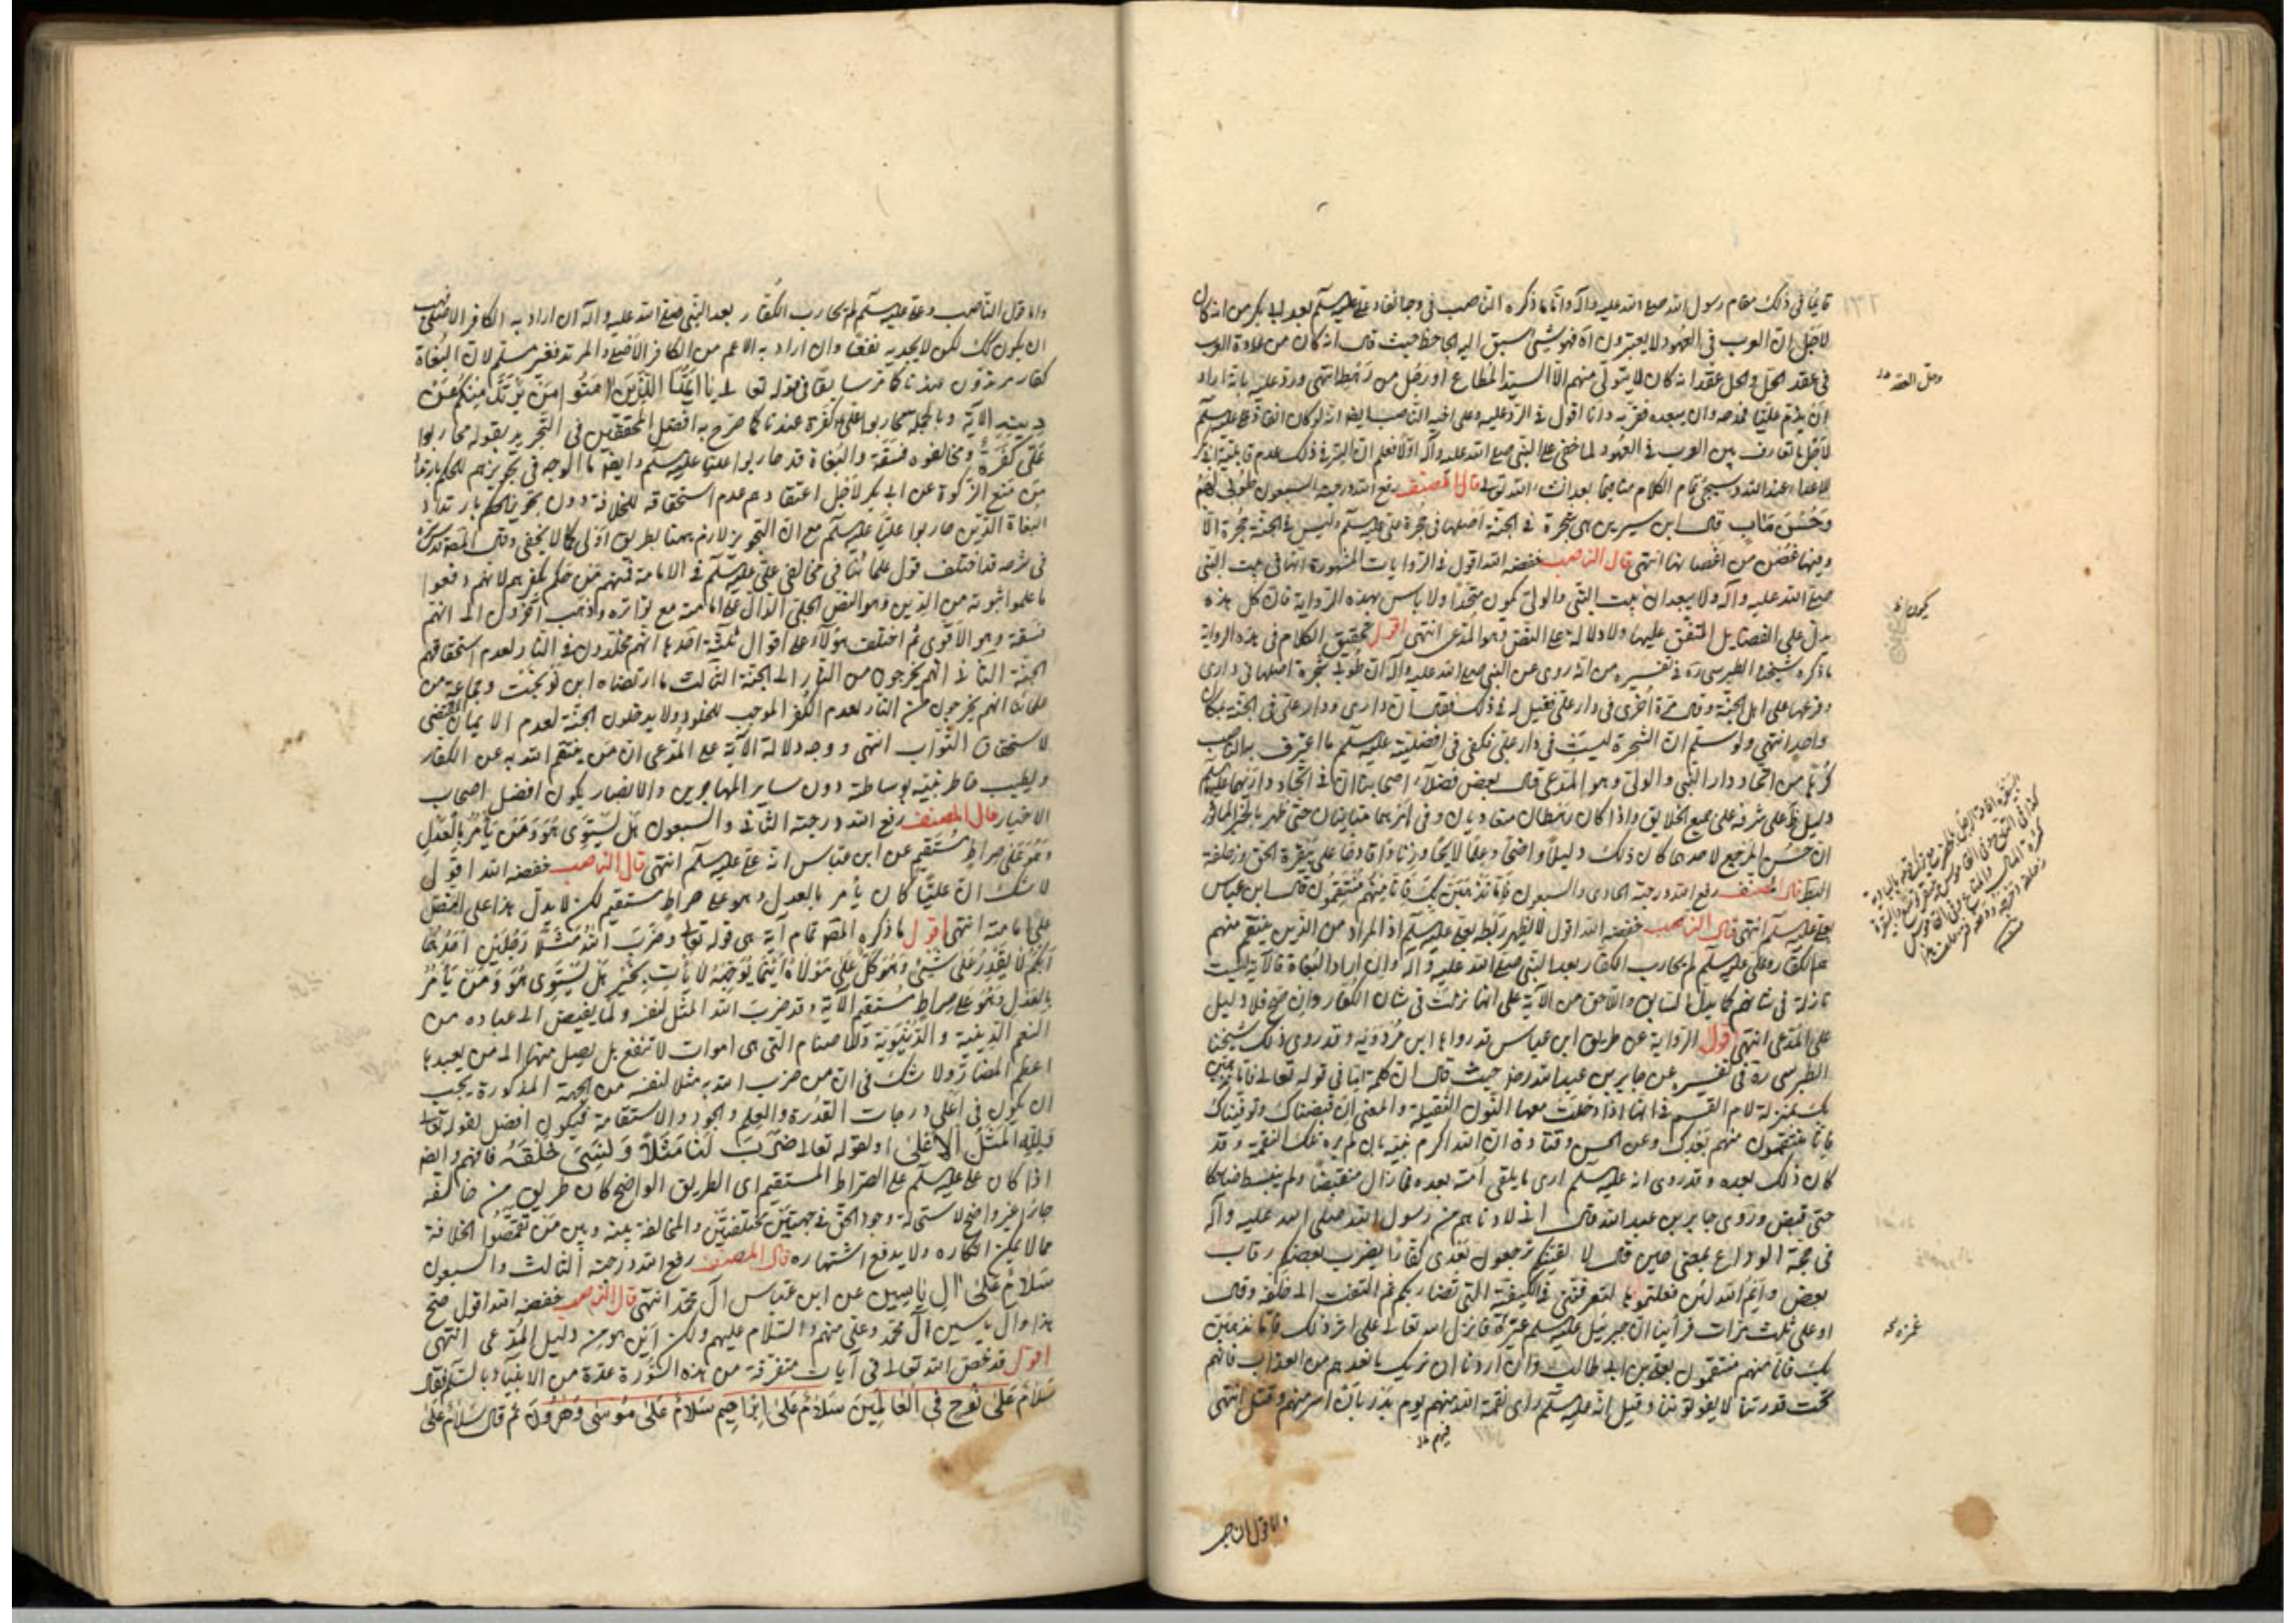 قايمًا في ذلك مقام رسول الله صلى الله عليه وآله وأما ما ذكره الناصب في وجه انفاذ علي عليه السلم بعد ابي بكر من انه كان
لاجل ان العرب في العهود لا يعتبرون اه فهو شيء سبق اليه الجاحظ حيث قال انه كان من عادة العرب
في عقد الحل وحل عقدا انه كان لا يتولى ذلك منهم الا السيد المطاع او رجل من رهطه انتهى
وحل العقد
لاجل ما تعارف بين العرب في العهود لما خفي على النبي صلى الله عليه وآله اولا فعلم ان السر في ذلك عدم قابلية ابي بكر
للاداء عند الله وسيجيء تمام الكلام بعد ان شاء الله تعالى قال المصنف رفع الله درجته السبعون طوبى لهم
وحسن مآب قال ابن سيرين هي شجرة في الجنة اصلها في حجرة علي عليه السلم وليس في الجنة حجرة الا
وفيها غصن من اغصانها انتهى قال الناصب خفضه الله اقول في الروايات المشهورة انها في بيت النبي
صلى الله عليه وآله ولا يبعد ان بيت النبي والولي يكون متحدًا ولا باس بهذه الرواية فان كل هذه
يدل على الفضايل المتفق عليها ولا دلالة على النص وهو المدعى انتهى اقول تحقيق الكلام في هذه الرواية
ما ذكره شيخنا الطبرسي ره في تفسيره من انه روى عن النبي صلى الله عليه وآله ان طوبى شجرة اصلها في داري
وفرعها على اهل الجنة وقال مرة اخرى في دار علي فقيل له في ذلك فقال ان داري ودار علي في الجنة بمكان
واحد انتهى ولو سلم ان الشجرة ليست في دار علي فكفى في افضليته عليه السلم ما اعترف به الناصب
كرمًا من اتحاد دار النبي والولي وهو المدعى قال بعض فضلاء اصحابنا ان في اتحاد داريهما عليهما السلم
دليل ظ على شرفه على جميع الخلايق واذا كان رهطان متعاديان وفي امرهما متباينان حتى ظهر بالخبر الماثور
ان حسن المرجع لاحدهما كان ذلك دليلًا واضحًا
قال المصنف رفع الله درجته الحادي والسبعون فاما نذهبن بك فانا منهم منتقمون قال ابن عباس
بعلي عليه السلم انتهى قال الناصب خفضه الله اقول لا يظهر ربطه بعلي عليه السلم اذ المراد من الذين ينتقم منهم
هم الكفار وعلي عليه السلم لم يحارب الكفار بعد النبي صلى الله عليه وآله وان اراد البغاة فالآية ليست
نازلة في شانهم كما يدل السابق واللاحق من الآية على انها نزلت في شان الكفار وان صح فلا دليل
على المدعى انتهى اقول الرواية عن طريق ابن عباس قد رواها ابن مردويه وقد روى ذلك شيخنا
الطبرسي ره في تفسيره عن جابر بن عبد الله رض حيث قال ان كلمة اما في قوله تعالى فاما نذهبن
بك بمنزلة لام القسم في انها اذا دخلت معها النون الثقيلة والمعنى ان قبضناك وتوفيناك
فانا منتقمون منهم بعدك وعن الحسن وقتادة ان الله اكرم نبيه بان لم يره تلك النقمة وقد
كان ذلك بعده وقد روى انه عليه السلم ارى ما يلقى امته بعده فما زال منقبضًا ولم ينبسط ضاحكا
حتى قبض وروى جابر بن عبد الله قال اني لادناهم من رسول الله صلى الله عليه وآله
في حجة الوداع بمنى حين قال لا الفينكم ترجعون بعدي كفارًا يضرب بعضكم رقاب
بعض وايم الله لئن فعلتموها لتعرفنني في الكتيبة التي تضاربكم ثم التفت الى خلفه وقال
او علي ثلث مرات فرأينا ان جبرئيل عليه السلم غمزه فانزل الله تعالى على اثر ذلك فاما نذهبن
غمزه
بك فانا منهم منتقمون بعلي بن ابي طالب وان اردنا ان نريك ما نعدهم من العذاب فانهم
تحت قدرتنا لا يفوتوننا وقيل انه عليه السلم راى نقمة الله منهم يوم بدر بان اسر منهم وقتل انتهى
منهم
واما قول الناصب
واما قول الناصب وعلي عليه السلم لم يحارب الكفار بعد النبي صلى الله عليه وآله ان اراد به الكافر الاصلي فهب
ان يكون كك لكن لا يجديه نفعًا وان اراد به الاعم من الكافر الاصلي والمرتد فغير مسلم لان البغاة
كفار مرتدون عندنا كما مر سابقًا في قوله تعالى يا ايها الذين امنوا من يرتد منكم عن
دينه الآية وبالجملة محاربوا علي كفرة عندنا كما صرح به افضل المحققين في التجريد بقوله محاربوا
علي كفرة ومخالفوه فسقة والبغاة قد حاربوا عليًا عليه السلم وايضًا ما الوجه في تجويزهم للحكم بارتداد
من منع الزكوة عن ابي بكر لاجل اعتقادهم عدم استحقاقه للخلافة دون تجويز الحكم بارتداد
البغاة الذين حاربوا عليًا عليه السلم مع ان التجويز لازم ههنا بطريق اولى كما لا يخفى وقال المصنف قدس سره
في شرحه قد اختلف قول علمائنا في مخالفي علي عليه السلم في الامامة فمنهم من حكم بكفرهم لانهم دفعوا
ما علموا ثبوته من الدين وهو النص الجلي الدال على امامته مع تواتره وذهب آخرون الى انهم
فسقة وهو الاقوى ثم اختلف هؤلاء على اقوال ثلثة احدها انهم مخلدون في النار لعدم استحقاقهم
الجنة الثاني انهم يخرجون من النار الى الجنة الثالث ما ارتضاه ابن نوبخت وجماعة من
علمائنا انهم يخرجون من النار لعدم الكفر الموجب للخلود ولا يدخلون الجنة لعدم الايمان المقتضي
لاستحقاق الثواب انتهى ووجه دلالة الآية على المدعى ان من ينتقم الله به عن الكفار
ويطيب خاطر نبيه بوساطته دون ساير المهاجرين والانصار يكون افضل اصحاب
الاخيار قال المصنف رفع الله درجته الثاني والسبعون هل يستوي هو ومن يأمر بالعدل
وهو على صراط مستقيم عن ابن عباس انه علي عليه السلم انتهى قال الناصب خفضه الله اقول
لا شك ان عليًا كان يأمر بالعدل وهو على صراط مستقيم لكن لا يدل هذا على النص
على امامته انتهى اقول ما ذكره المصنف تمام آية هي قوله تعالى وضرب الله مثلًا رجلين احدهما
ابكم لا يقدر على شيء وهو كل على مولاه اينما يوجهه لا يأت بخير هل يستوي هو ومن يأمر
بالعدل وهو على صراط مستقيم الآية وقد ضرب الله المثل لنفسه ولما يفيض الى عباده من
النعم الدينية والدنيوية وللاصنام التي هي اموات لا تنفع بل يصل منها الى من يعبدها
اعظم المضار ولا شك في ان من ضرب الله به مثلا لنفسه من الجهة المذكورة يجب
ان يكون في اعلى درجات القدرة والعلم والجود والاستقامة فيكون افضل لقوله تعالى
ولله المثل الاعلى ولقوله تعالى ضرب لنا مثلًا ونسي خلقه فافهم وايضًا
اذا كان علي عليه السلم على الصراط المستقيم اي الطريق الواضح كان طريق من خالفه
جائرًا غير واضح لاستحالة وجود الحق في جهتين مختلفتين والمخالفة بينه وبين من تقمصوا الخلافة
مما لا يمكن انكاره ولا يدفع اشتهاره قال المصنف رفع الله درجته الثالث والسبعون
سلام على ال ياسين عن ابن عباس آل محمد انتهى قال الناصب خفضه الله اقول صح
هذا وآل ياسين آل محمد وعلي منهم والسلام عليهم ولكن اين هو من دليل المدعى انتهى
اقول قد خص الله تعالى في آيات متفرقة من هذه السورة عدة من الانبياء بالسلام فقال
سلام على نوح في العالمين سلام على ابراهيم سلام على موسى وهرون ثم قال سلام على